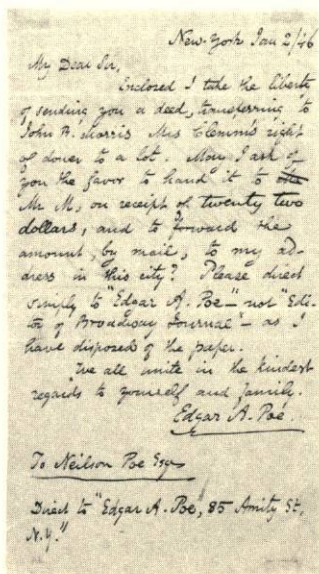 New-York Jan 2/46
My Dear Sir,
Enclosed I take the liberty
of sending you a deed, transferring to
John H. Morris Mrs Clemm's right
of dower to a lot. May I ask of
you the favor to hand it to the
Mr M, on receipt of twenty two
dollars, and to forward the
amount, by mail, to my ad-
dress in this city? Please direct
simply to "Edgar A. Poe" — not "Edi-
tor of Broadway Journal" — as I
have disposed of the paper.
We all unite in the kindest
regards to yourself and family.
Edgar A. Poe
To Neilson Poe Esqr
Direct to "Edgar A. Poe", 85 Amity St,
N.Y."